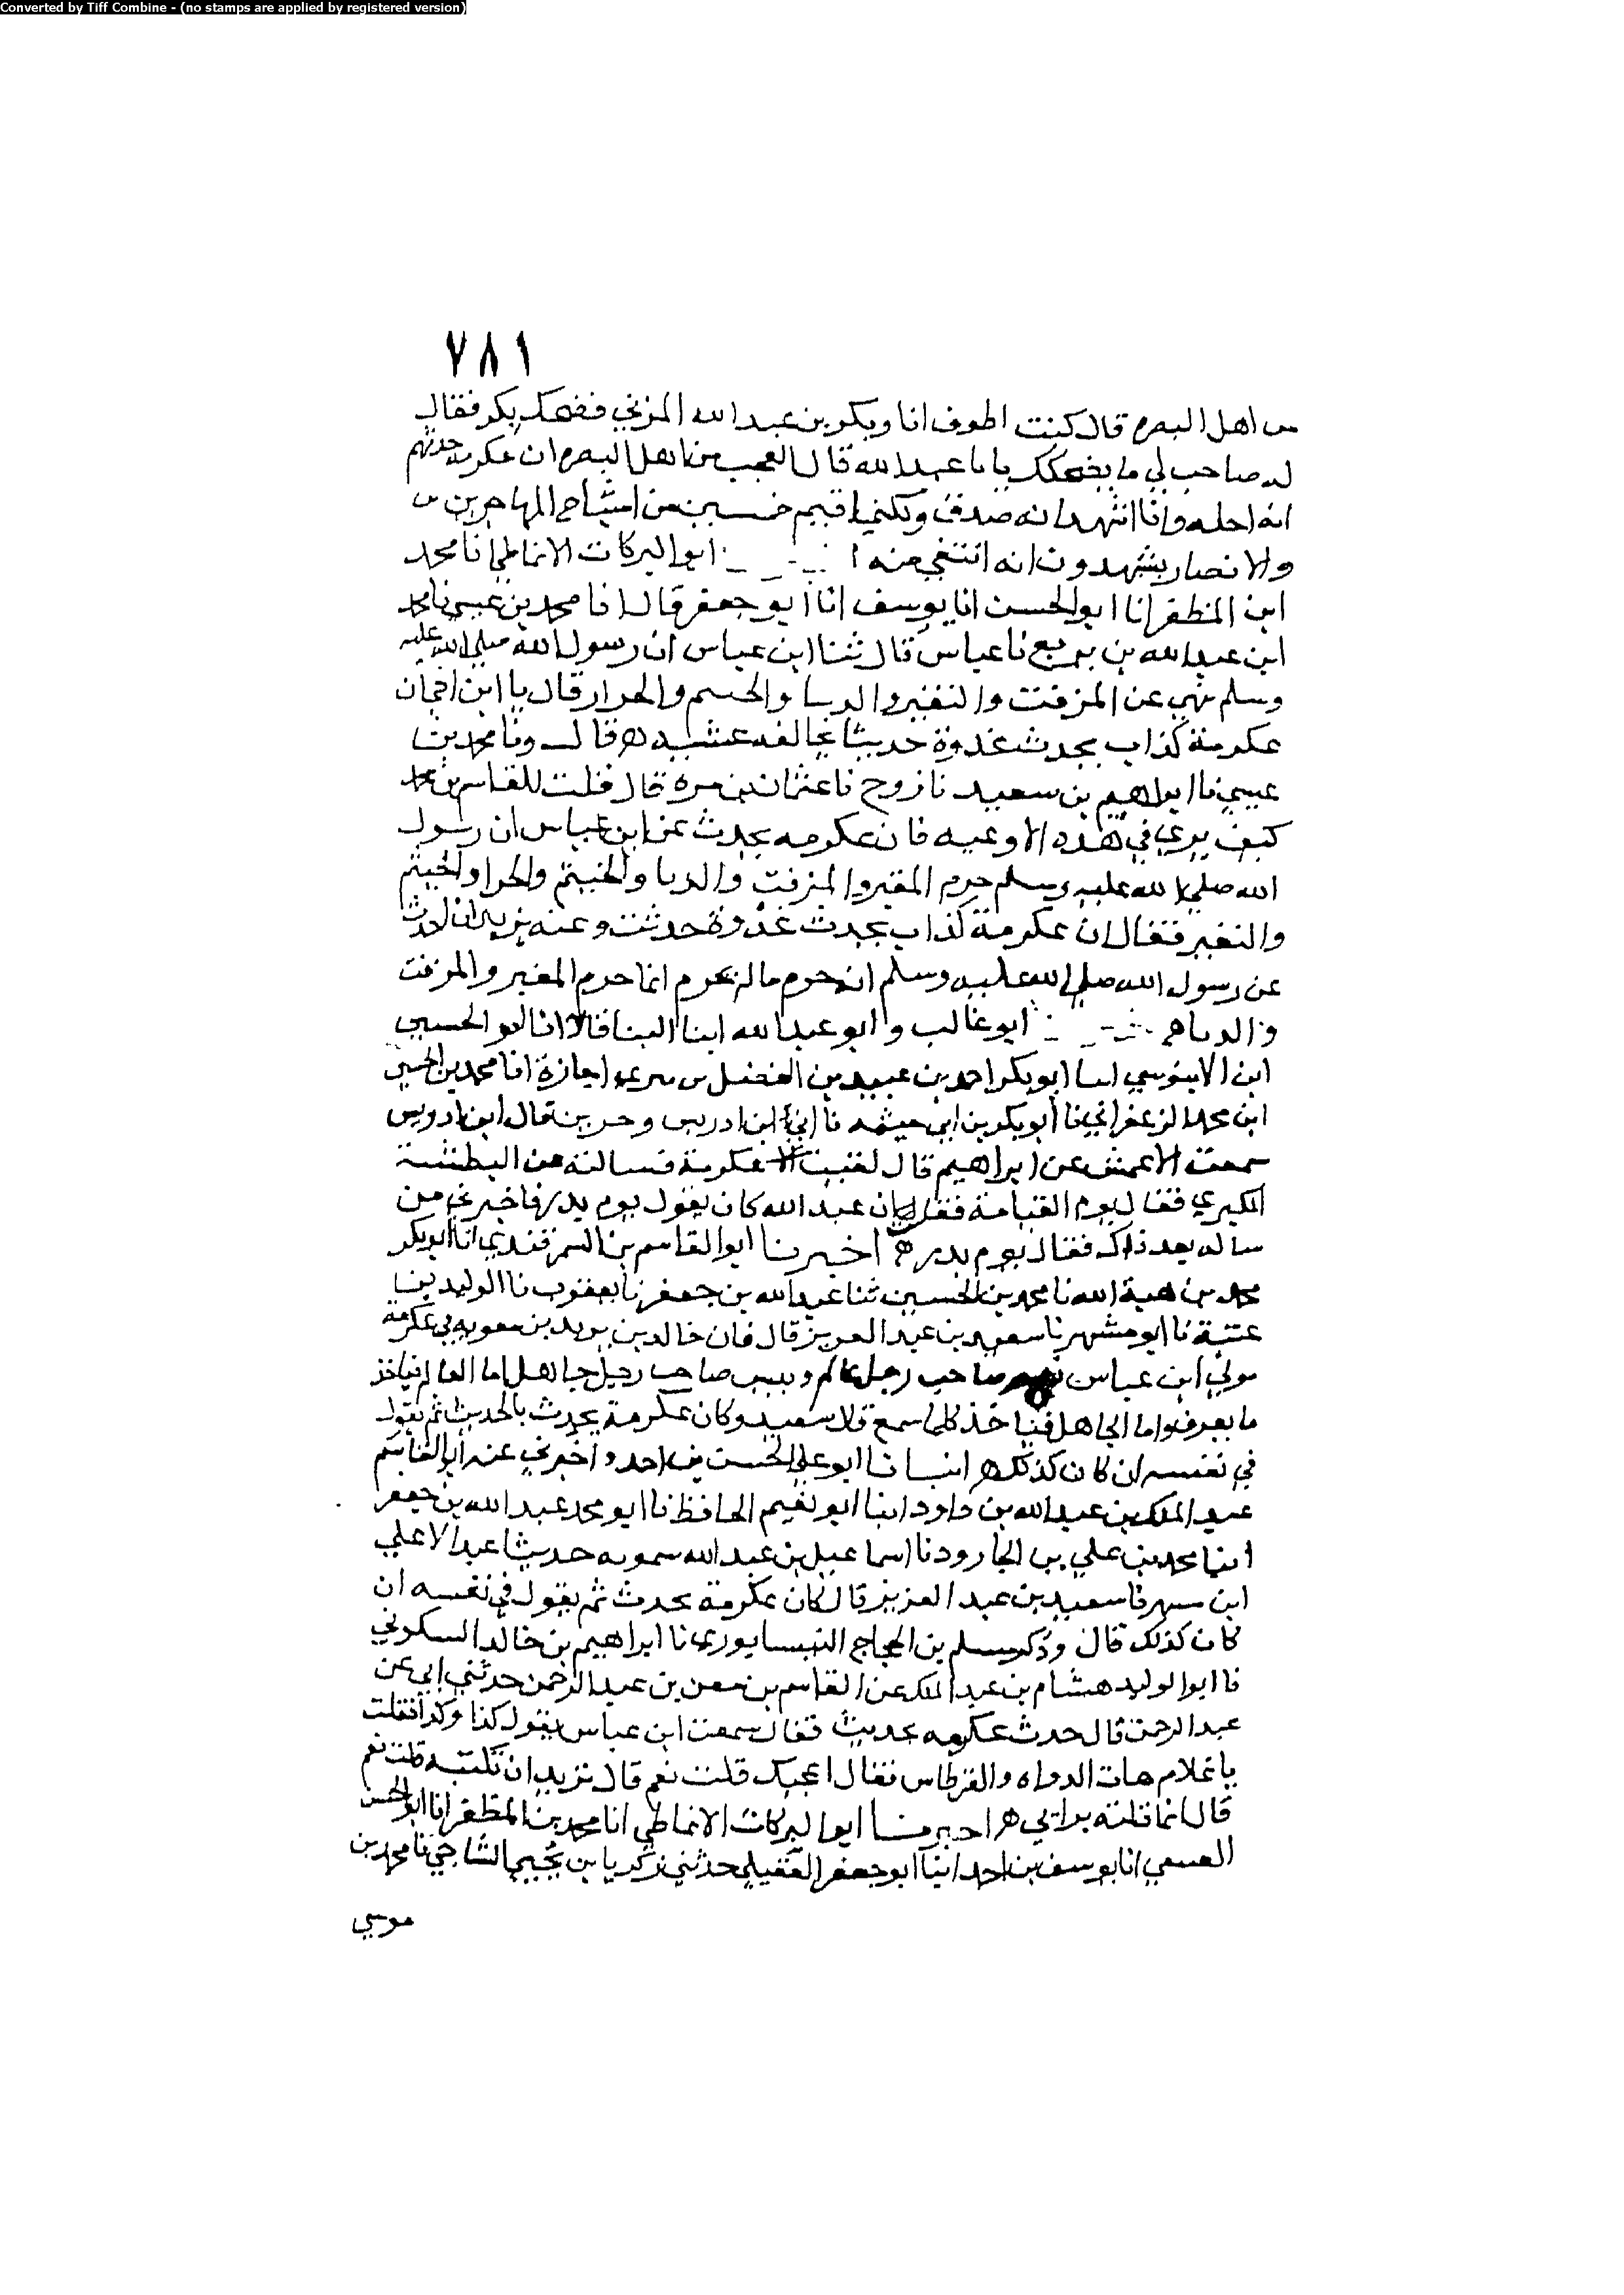 Converted by Tiff Combine - (no stamps are applied by registered version)
٧٨١
من اهل البصره قال كنت اطوف انا وبكر بن عبد الله المزني فضحك بكر فقال
له صاحب لي ما يضحكك يا با عبد الله قال العجب من اهل البصره ان عكرمه حدثهم
انه احله وانا اشهد انه صدق ولكني اقيم خمسين من اشياخ المهاجرين
والانصار يشهدون انه انتفي منه ابو البركات الانماطي انا محمد
ابن المظفر انا ابو الحسن انا يوسف انا ابو جعفر قال نا محمد بن عيسي نا محمد
ابن عبد الله بن بزيع نا عباس قال ثنا ابن عباس ان رسول الله صلي الله عليه
وسلم نهي عن المزفت والنقير والدبا والحنتم والجرار قال يا ابن اخي ان
عكرمة كذاب يحدث غدوة حديثا يخالفه عشيه ه قال ونا محمد بن
عيسي نا ابراهيم بن سعيد نا روح نا عثمان بن مره قال قلت للقاسم بن محمد
كيف يري في هذه الاوعيه فان عكرمه يحدث عن ابن عباس ان رسول
الله صلي الله عليه وسلم حرم المقير والمزفت والدبا والحنتم والجرا والحنتم
والنقير فقال ان عكرمة كذاب يحدث غدوة
عن رسول الله صلي الله عليه وسلم انه حرم ما لم يحرم انما حرم المقير والمزفت
والدبا ه ابو غالب وابو عبد الله ابنا البنا قالا انا ابو الحسين
ابن الابنوسي انبا ابو بكر احمد بن عبيد بن الفضل بن بيري اجازة انا محمد بن الحسين
ابن محمد الزعفراني نا ابو بكر بن ابي خيثمه نا ابي نا ابن ادريس وجرير قال ابن ادريس
سمعت الاعمش عن ابراهيم قال لقيت عكرمة فسالته عن البطشة
الكبري فقال يوم القيامة فقلت ان عبد الله كان يقول يوم بدر فاخبرني من
ساله بعد ذاك فقال يوم بدر ه اخبرنا ابو القاسم بن السمرقندي انا ابو بكر
محمد بن هبة الله نا محمد بن الحسين ثنا عبد الله بن جعفر نا يعقوب نا الوليد بن
عتبة نا ابو مسهر نا سعيد بن عبد العزيز قال قال خالد بن يزيد بن معويه في عكرمة
مولي ابن عباس نعم صاحب رجل عالم وبيس صاحب رجل جاهل اما العالم فياخذ
ما يعرف واما الجاهل فياخذ كلما سمع قال سعيد وكان عكرمة يحدث بالحديث ثم يقول
في نفسه ان كان كذلك ه انبانا ابو علي الحسن بن احمد واخبرني عنه ابو القاسم
عبد الملك بن عبد الله بن داود انبا ابو نعيم الحافظ نا ابو محمد عبد الله بن جعفر
انبا محمد بن علي بن الجارود نا اسماعيل بن عبد الله سمويه حدثنا عبد الاعلي
ابن مسهر نا سعيد بن عبد العزيز قال كان عكرمة يحدث ثم يقول في نفسه ان
كان كذلك قال وذكر مسلم بن الحجاج النيسابوري نا ابراهيم بن خالد السكوني
نا ابو الوليد هشام بن عبد الملك عن القاسم بن معن بن عبد الرحمن حدثني ابي عن
عبد الرحمن قال حدث عكرمه بحديث فقال سمعت ابن عباس يقول كذا وكذا فقلت
يا غلام هات الدواه والقرطاس فقال اعجبك قلت نعم قال تريد ان تكتبه قلت نعم
قال انما قلته برايي ه اخبرنا ابو البركات الانماطي انا محمد بن المظفر انا ابو الحسن
العتيقي انا يوسف بن احمد انبا ابو جعفر العقيلي حدثني زكريا بن يحيي الساجي نا محمد بن
موسي